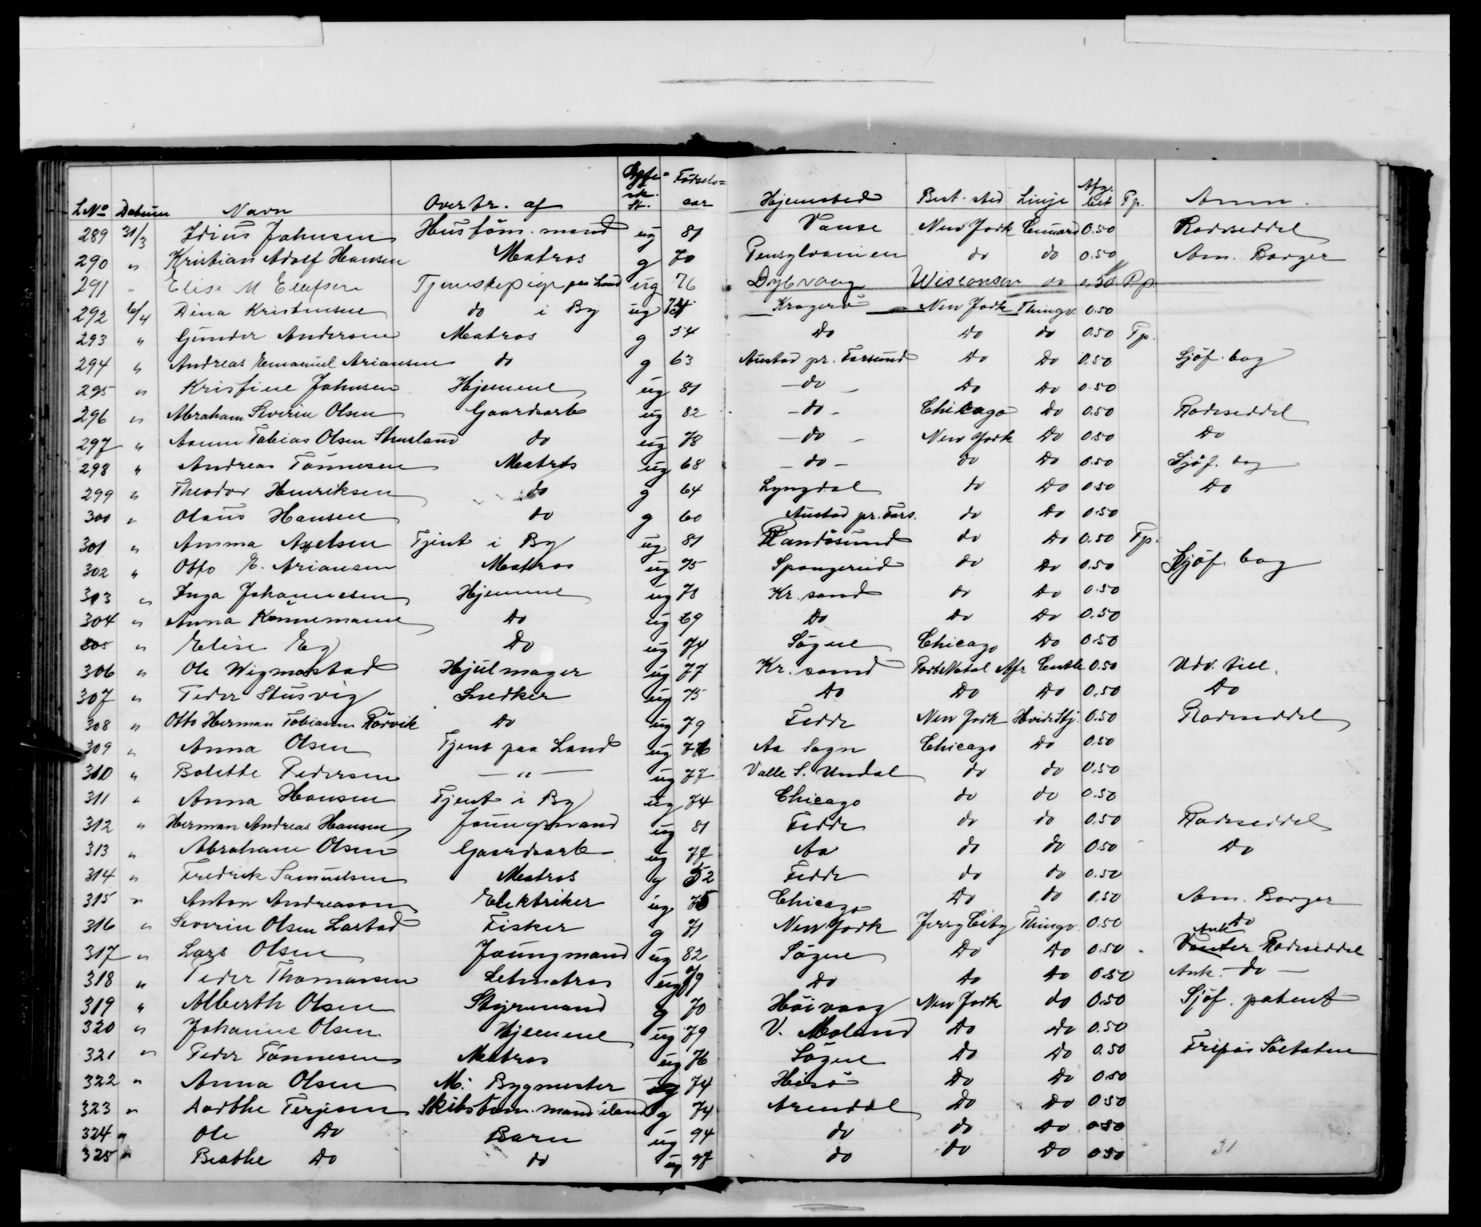 L.No Datum Navn Overtr. af Ægte- sk. st. Fødsels- aar Hjemsted Best. sted Linje Afg. bet Tp. Anm.
289 31/3 Idius Johnsen Husføm. mand ug 81 Vanse New York Cunard 0.50 Rodeseddel
290 " Kristian Adolf Hansen Matros g 70 Pensylvanien do do 0.50 Am. Borger
291 " Elise M Elefsen Tjenestepige paa Land ug 76 Dybvaag Wisconsin do 0.50 Rp
292 6/4 Dina Kristensen do i By ug 74 Kragerø New York Thingv. 0.50
293 " Gunder Andersen Matros g 54 Do Do do 0.50 Tp.
294 " Andreas Emanuel Ariansen do g 63 Austad pr. Farsund Do Do 0.50 Sjöf. bog
295 " Kristine Johnsen Hjemme ug 81 - do - Do Do 0.50
296 " Abraham Severin Olsen Gaardsarb ug 82 - do - Chicago do 0.50 Rodeseddel
297 " Tobias Olsen do ug 78 - do - New York Do 0.50 Do
298 " Andreas Tönnesen Matros ug 68 - do - do Do 0.50 Sjöf. bog
299 " Theodor Henriksen do g 64 Lyngdal do Do 0.50 Do
300 " Olaus Hansen do g 60 Austad pr. Fars. do Do 0.50
301 " Amma Axelsen Tjent i By ug 81 Randøsund do Do 0.50 Tp.
302 " Otto E. Ariansen Matros ug 75 Spangereid do Do 0.50 Sjöf. bog
303 " Inga Johannesen Hjemme ug 78 Kr. sand do Do 0.50
304 " Anna Könnemann Do ug 69 Do do Do 0.50
305 " Elise Eg Do ug 74 Søgne Chicago Do 0.50
306 " Ole Wigmostad Hjulmager ug 77 Kr. sand Port Natal Afr Castle 0.50 Udv. till.
307 " Peder Stusvig Snedker ug 75 Do Do Do 0.50 Do
308 " Otto Herman Tobiasen Rörvik Do ug 79 Fedde New York Hvide Stj 0.50 Rodeseddel
309 " Anna Olsen Tjent paa Land ug 76 Aa Sogn Chicago Do 0.50
310 " Bolette Pedersen - " - ug 77 Valle S. Undal do do 0.50
311 " Anna Hansen Tjent i By ug 74 Chicago do do 0.50
312 " Herman Andreas Hansen Joungmand ug 81 Fedde do do 0.50 Rodeseddel
313 " Abraham Olsen Gaardsarb ug 77 Aa do do 0.50 Do
314 " Fredrik Samuelsen Matros g 52 Fedde do do 0.50
315 " Anton Andreassen Elektriker ug 75 Chicago Do do 0.50 Am. Borger
316 " Severin Olsen Lastad Fisker g 71 New York Jerry City Thingv. 0.50 do
317 " Lars Olsen Joungmand ug 82 Søgne Do Do 0.50 Ank. Rodeseddel
318 " Peder Thomassen Letmatros ug 79 Do Do Do 0.50 Ank. - do -
319 " Alberth Olsen Styrmand g 70 Høivaag New York do 0.50 Sjöf. patent
320 " Johanne Olsen Hjemme ug 79 V. Moland Do do 0.50
321 " Peder Tönnesen Matros ug 76 Søgne Do Do 0.50 Fripas
322 " Anna Olsen M: Bygmester ug 74 Hisø Do Do 0.50
323 " Dorthe Terjesen Skibstøm. mand iland g 74 Arendal Do Do 0.50
324 " Ole Do Barn ug 94 do do Do 0.50
325 " Beathe Do do ug 98 do Do Do 0.50
31